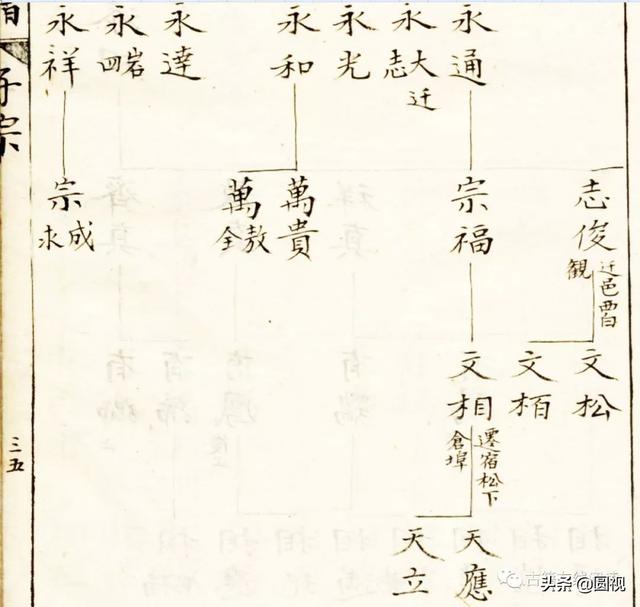 永通
永大志
迁
永光
永和
永達
永四岩
永祥
志俊
迁邑西白
觀
宗福
萬貴
萬敖全
宗成求
文松
文栢
文相
遷宿松下
倉埠
天應
天立
三五
头条 @圆视